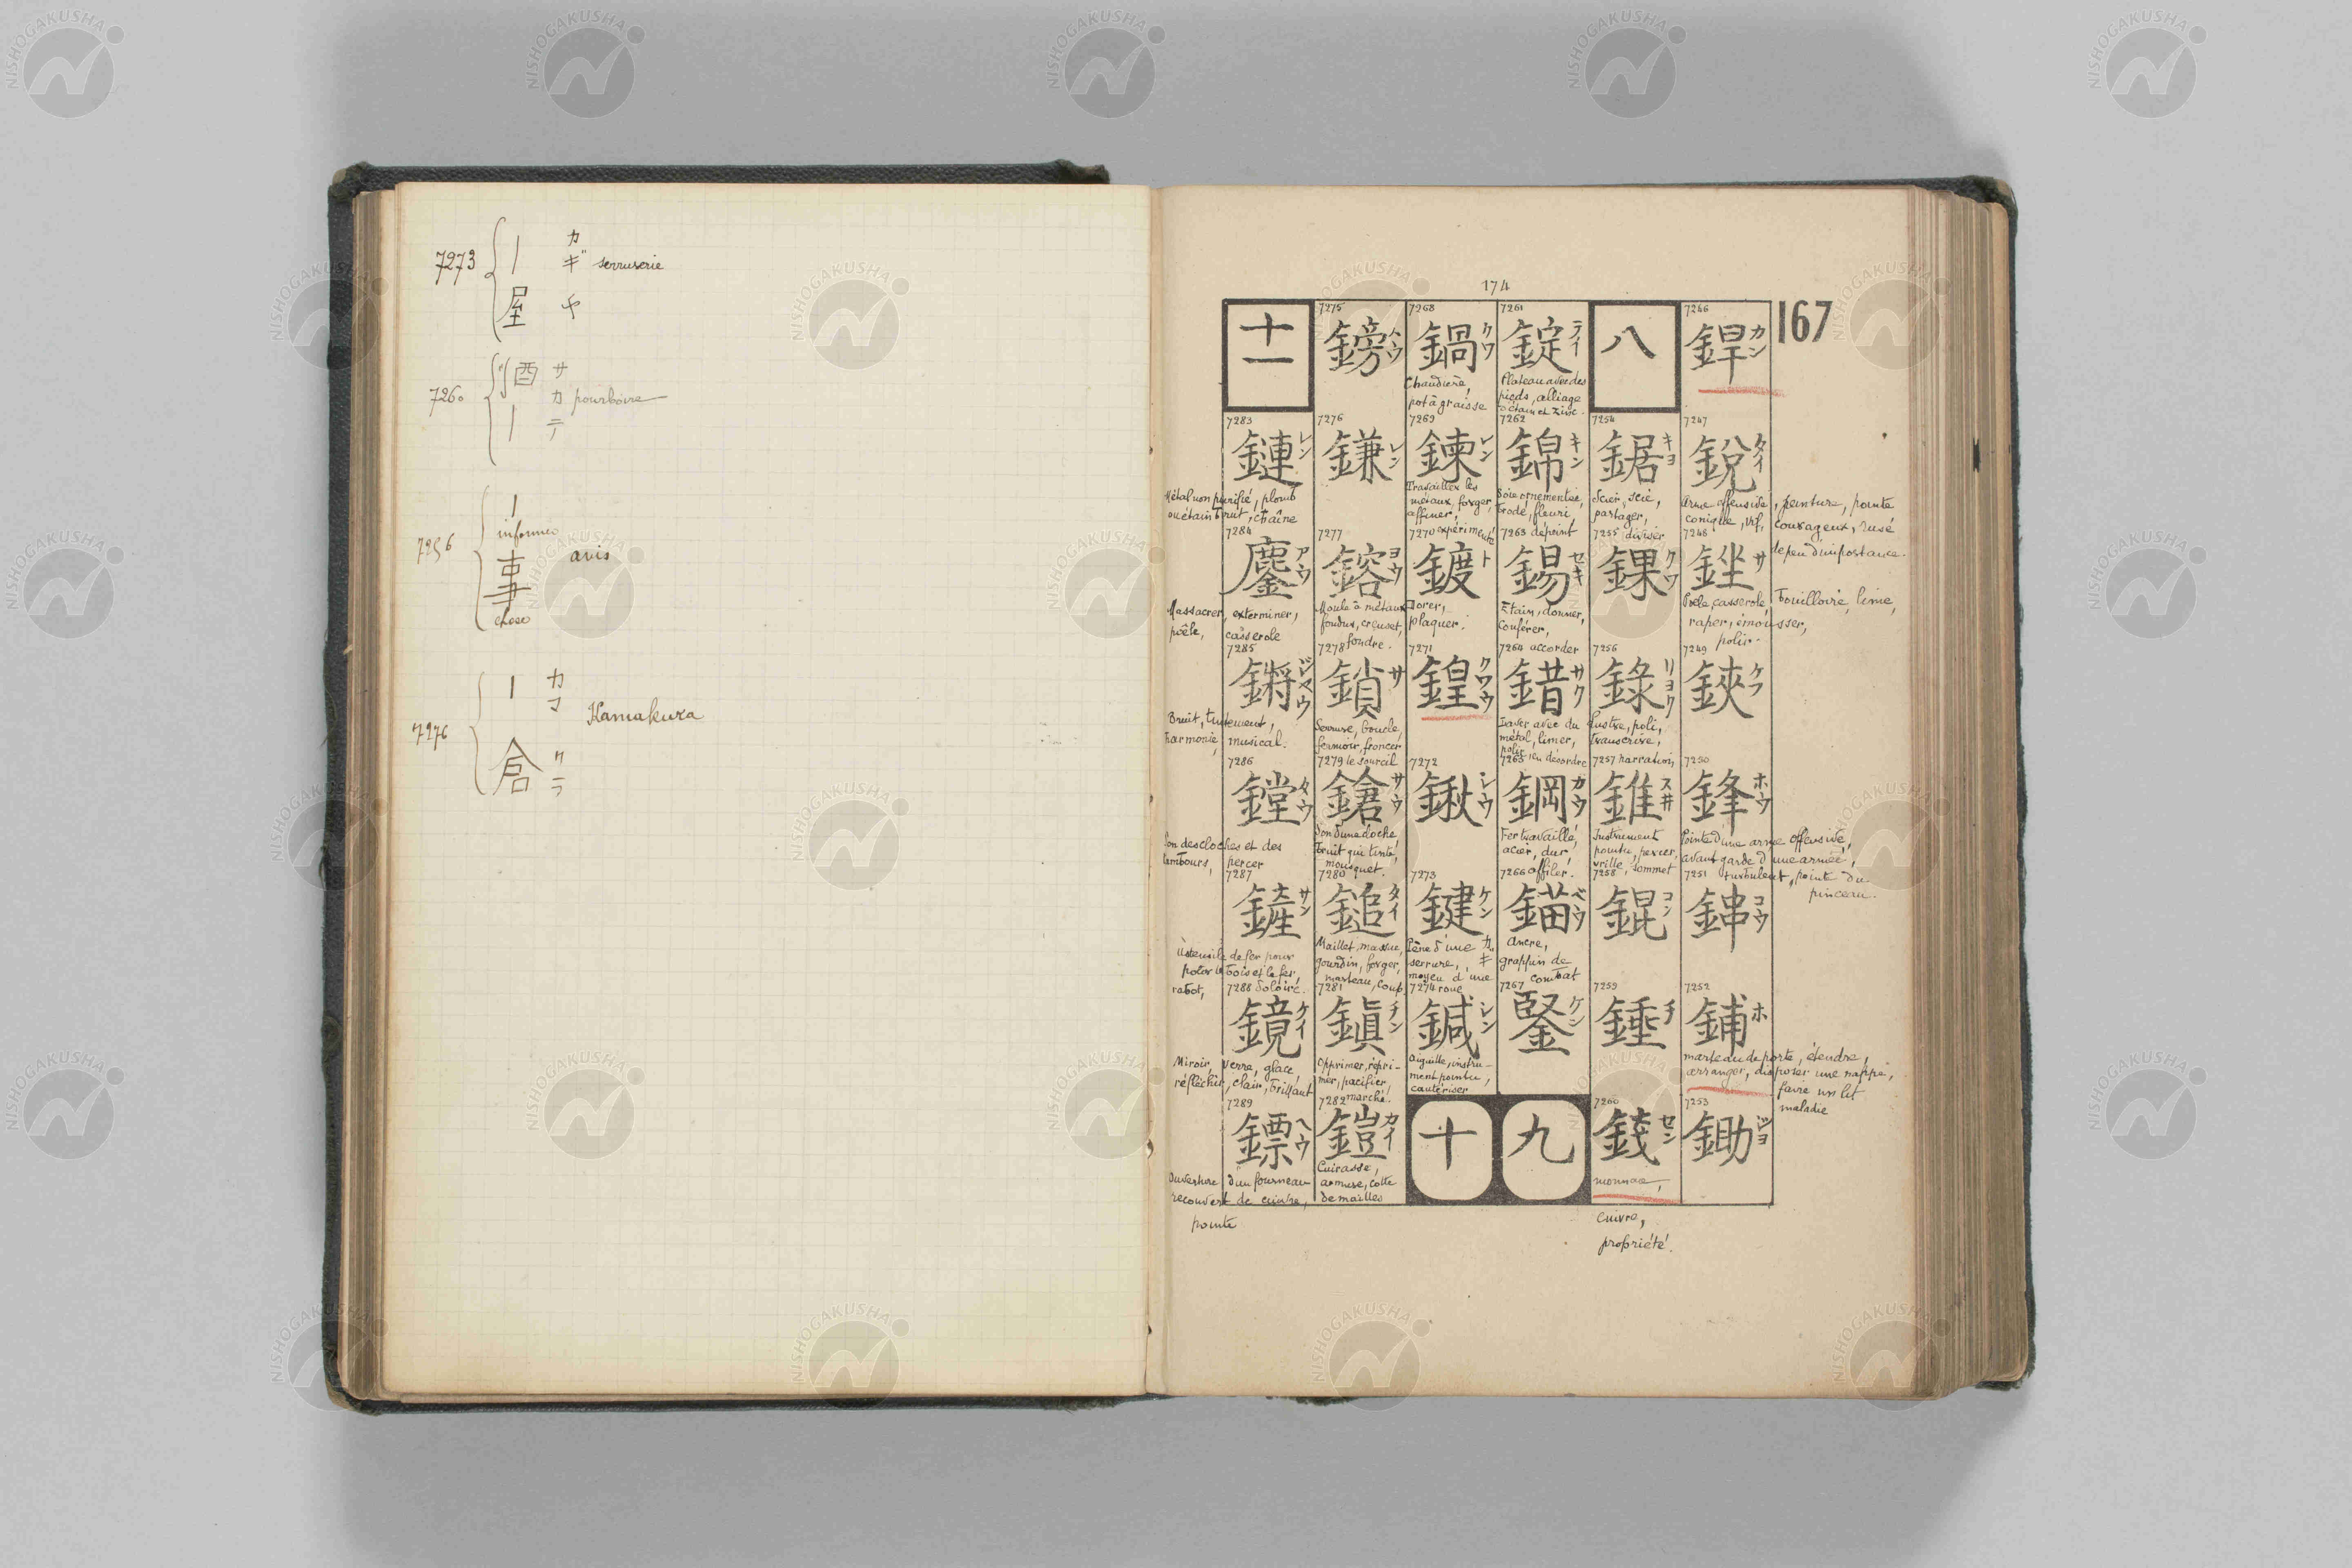 7273 { | カギ serrurerie
屋 ヤ
7260 { 酒 サカ pourboire
| テ
7256 { |
informer
avis
事
chose
7276 { | カマ Kamakura
倉 クラ
174
167
7246
銲 カン
7247
鋭 タイ
arme offensive, peinture, pointe
conique, vif, courageux, rusé
de peu d'importance.
7248
銼 サ
Poêle, casserole, bouilloire, lime,
raper, émousser,
polir.
7249
鋏 ケフ
7250
鋒 ホウ
Pointe d'une arme offensive,
avant garde d'une armée,
turbulent, pointe du
pinceau.
7251
鋛 コウ
7252
鋪 ホ
marteau de porte, étendre,
arranger, disposer une nappe,
faire un lit
maladie
7253
鋤 ジヨ
八
7254
鋸 キヨ
Scier, scie,
partager,
diviser
7255
錁 クワ
7256
錄 リヨク
Lustre, poli,
transcrire,
narration
7257
錐 スヰ
Instrument
pointu, percer,
vrille, sommet
7258
錕 コン
7259
錘 チ
7260
錢 セン
monnaie,
cuivre,
propriété.
7261
錠 テイ
Plateau avec des
pieds, alliage
d'étain et zinc.
7262
錦 キン
Soie ornementée,
brodé, fleuri,
dépeint
7263
錫 セキ
Etain, donner,
conférer,
accorder
7264
錯 サク
Laver avec du
métal, limer,
polir, en désordre
7265
鋼 カウ
Fer travaillé,
acier, dur,
affiler.
7266
錨 ベウ
Ancre,
grappin de
combat
7267
鋻 ケン
九
7268
鍋 クワ
Chaudière,
pot à graisse
7269
鍊 レン
Travailler les
métaux, forger,
affiner,
expérimenté
7270
鍍 ト
Dorer,
plaquer.
7271
鍠 クワウ
7272
鍬 シウ
7273
鍵 ケン
Pène d'une カギ
serrure,
moyeu d'une
roue
7274
鍼 シン
Aiguille, instru-
ment pointu,
cautériser
十
7275
鎊 ハウ
7276
鎌 レン
7277
鎔 ヨウ
Moule à métaux
fondus, creuset,
fondre.
7278
鎖 サ
Serrure, boucle,
fermoir, froncer
le sourcil
7279
鎗 サウ
Son d'une cloche
Bruit qui tinte,
mousquet.
7280
鎚 タイ
Maillet, massue,
gourdin, forger,
marteau, coup
7281
鎭 チン
Opprimer, répri-
mer, pacifier,
marché.
7282
鎧 カイ
Cuirasse,
armure, cotte
de mailles
十一
7283
鏈 レン
Métal non purifié, plomb
ou étain brut, chaîne
7284
鏖 アウ
Massacrer, exterminer,
poêle, casserole
7285
鏘 ジヤウ
Bruit, tintement,
harmonie, musical.
7286
鏜 タウ
Son des cloches et des
tambours, percer
7287
鏟 サン
Ustensile de fer pour
polir le bois et le fer,
rabot, doloire.
7288
鏡 ケイ
Miroir, verre, glace,
réfléchir, clair, brillant
7289
鏢 ヘウ
Ouverture d'un fourneau
recouvert de cuivre,
pointe
NISHOGAKUSHA